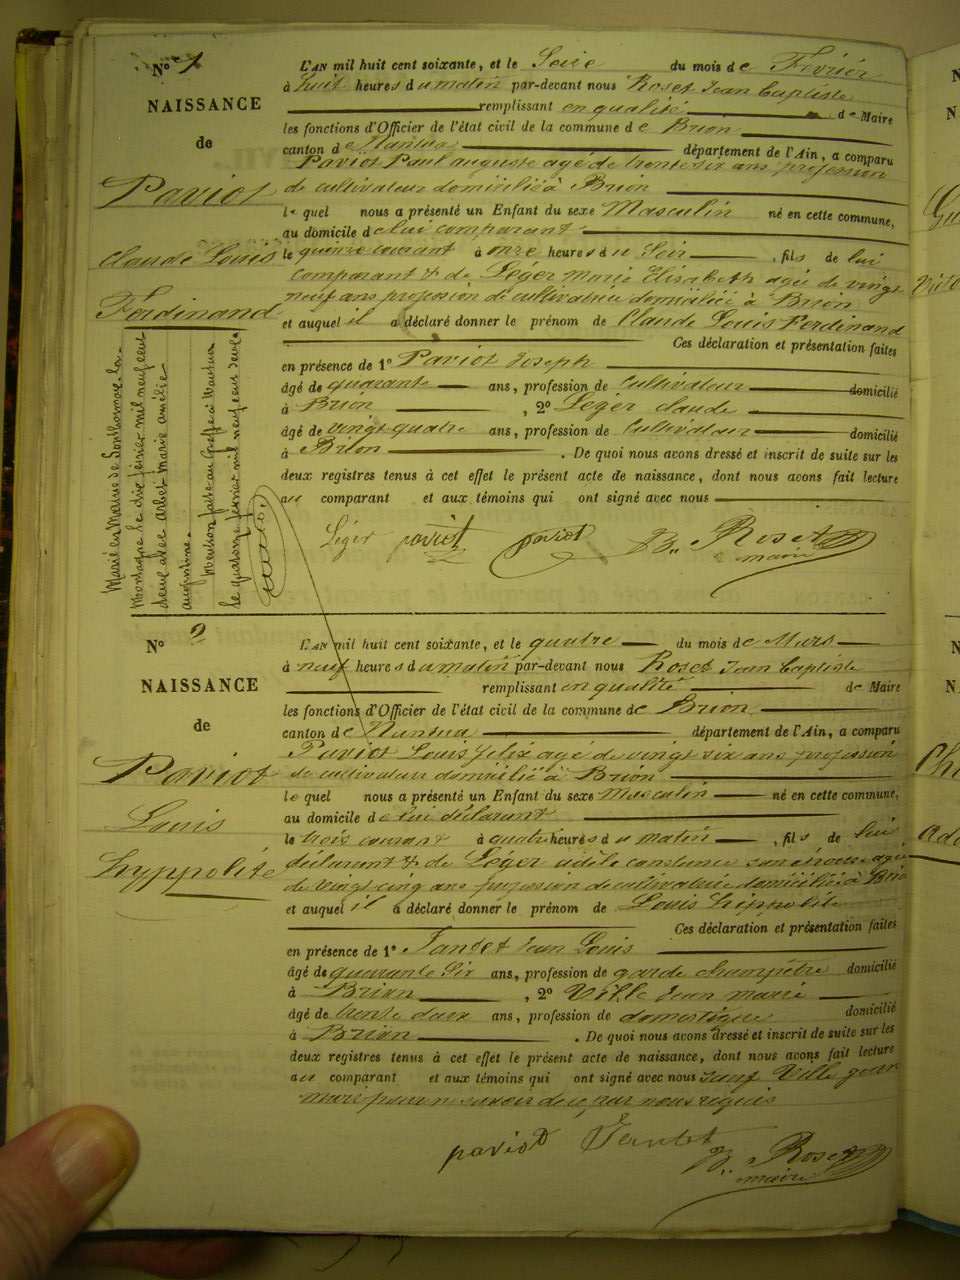 N° 1
NAISSANCE
de
Paviot
Claude Louis
Ferdinand
L'AN mil huit cent soixante, et le Seize du mois de Février
à huit heures du matin par-devant nous Roset Jean Baptiste
remplissant en qualité de Maire
les fonctions d'Officier de l'état civil de la commune de Brion
canton de Nantua département de l'Ain, a comparu
Paviot Paul auguste agé de trente six ans profession
de cultivateur domicilié à Brion
le quel nous a présenté un Enfant du sexe Masculin né en cette commune,
au domicile de lui comparant
le quinze courant à onze heures du Soir , fils de lui
comparant & de Léger Marie Elisabeth agée de vingt
neuf ans profession de cultivatrice domiciliée à Brion
et auquel il a déclaré donner le prénom de Claude Louis Ferdinand
Ces déclaration et présentation faites
en présence de 1° Paviot Joseph
âgé de quarante ans, profession de Cultivateur domicilié
à Brion , 2° Léger Claude
âgé de vingt quatre ans, profession de Cultivateur domicilié
à Brion . De quoi nous avons dressé et inscrit de suite sur les
deux registres tenus à cet effet le présent acte de naissance, dont nous avons fait lecture
au comparant et aux témoins qui ont signé avec nous
Léger paviot paviot B. Roset
maire
Marié en Mairie de Sonthonnax la
Montagne le dix février mil neuf cent
deux avec Arbet Marie Amélie
augustine.
Mention faite au Greffe à Nantua
le quatorze février mil neuf cent deux
N° 2
NAISSANCE
de
Paviot
Louis
hyppolite
L'AN mil huit cent soixante, et le quatre du mois de Mars
à neuf heures du matin par-devant nous Roset Jean Baptiste
remplissant en qualité de Maire
les fonctions d'Officier de l'état civil de la commune de Brion
canton de Nantua département de l'Ain, a comparu
Paviot Louis felix agé de vingt six ans profession
de cultivateur domicilié à Brion
le quel nous a présenté un Enfant du sexe Masculin né en cette commune,
au domicile de lui déclarant
le trois courant à quatre heures du matin , fils de lui
déclarant & de Léger adèle constance son épouse agée
de vingt cinq ans profession de cultivatrice domiciliée à Brion
et auquel il a déclaré donner le prénom de Louis hippolite
Ces déclaration et présentation faites
en présence de 1° Jantet Jean Louis
âgé de quarante six ans, profession de garde champêtre domicilié
à Brion , 2° Ville Jean marie
âgé de trente deux ans, profession de domestique domicilié
à Brion . De quoi nous avons dressé et inscrit de suite sur les
deux registres tenus à cet effet le présent acte de naissance, dont nous avons fait lecture
au comparant et aux témoins qui ont signé avec nous sauf Ville Jean
marie pour ne savoir de ce par nous requis
paviot Jantet B. Roset
maire